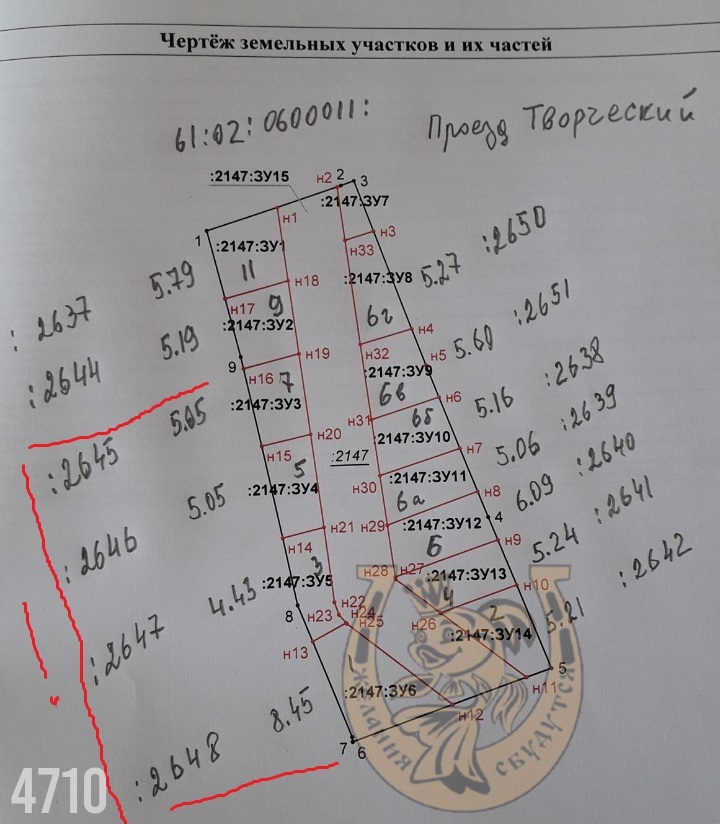 Чертёж земельных участков и их частей
61:02:0600011: Проезд Творческий
:2147:ЗУ15
н2 2 3
:2147:ЗУ7
н1
1
:2147:ЗУ1
н3
н33
11
н18
:2147:ЗУ8
5.27 :2650
: 2637 5.79
н17
9
:2147:ЗУ2
6г
н4
:2644 5.19
9
н19
н32
н5
5.60 :2651
н16
7
:2147:ЗУ9
6в
н6
:2147:ЗУ3
5.16 :2638
:2645 5.05
н31
6б
н20
:2147:ЗУ10
н15
:2147
н7
5.06 :2639
5
н30
:2147:ЗУ11
:2147:ЗУ4
6а
н8
6.09 :2640
:2646 5.05
н21
н29
:2147:ЗУ12
4
н14
6
н9
5.24 :2641
3
н28
н27
:2147:ЗУ13
:2147:ЗУ5
4
н10
:2647 4.43
8
н22
н23
н24
н25
н26
2
5.21 :2642
:2147:ЗУ14
н13
1
5
н11
:2147:ЗУ6
н12
:2648 8.45
7
6
ЖЕЛАНИЯ СБУДУТСЯ
4710